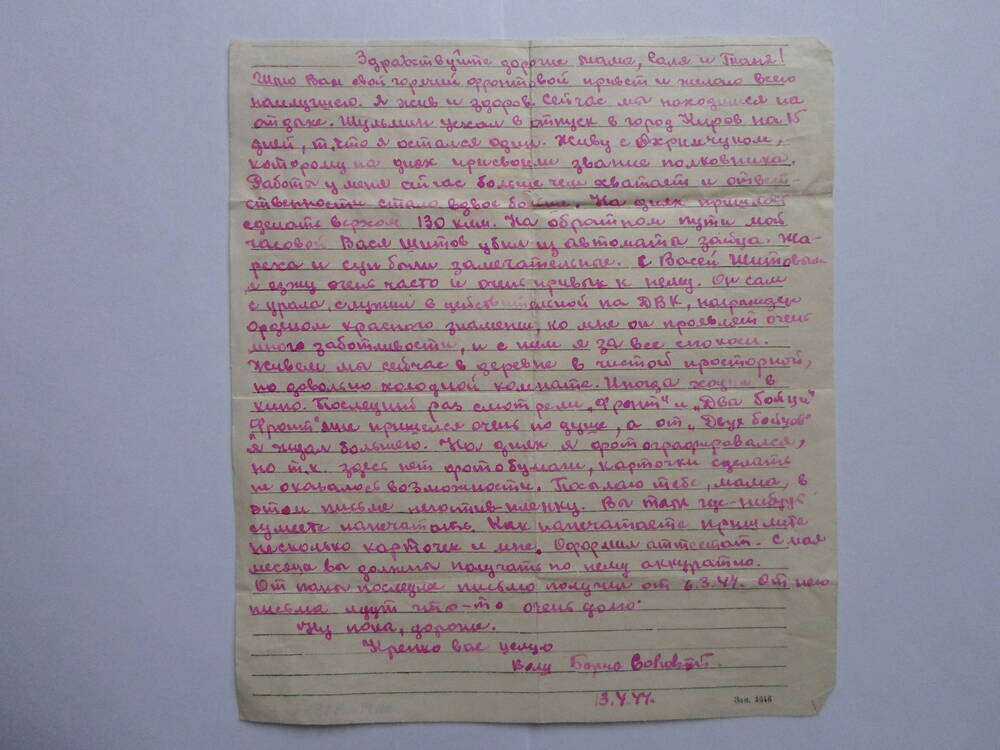 Здравствуйте дорогие мама, Галя и Таня!
Шлю Вам свой горячий фронтовой привет и желаю всего
наилучшего. Я жив и здоров. Сейчас мы находимся на
отдыхе. Шульмин уехал в отпуск в город Киров на 15
дней, т.что я остался один. Живу с Охримчуком,
которому на днях присвоили звание полковника.
Работы у меня сейчас больше чем хватает и ответ-
ственности стало вдвое больше. На днях пришлось
сделать верхом 130 клм. На обратном пути мой
часовой Вася Шитов убил из автомата зайца. Жа-
реха и суп были замечательные. С Васей Шитовым
я езжу очень часто и очень привык к нему. Он сам
с урала, служил в действительной на ДВК, награжден
орденом красного знамени, ко мне он проявляет очень
много заботливости, и с ним я за все спокоен.
Живем мы сейчас в деревне в чистой просторной,
но довольно холодной комнате. Иногда ходим в
кино. Последний раз смотрели „Фронт" и „Два бойца"
„Фронт" мне пришелся очень по душе, а от „Двух бойцов"
я ждал большего. На днях я фотографировался,
но т.к. здесь нет фотобумаги, карточки сделать
не оказалось возможности. Посылаю тебе, мама, в
этом письме негатив-пленку. Вы там где-нибудь
сумеете напечатать. Как напечатаете пришлите
несколько карточек и мне. Оформил аттестат. С мая
месяца вы должны получать по нему аккуратно.
От папы последнее письмо получил от 6.3.44. От него
письма идут что-то очень долго.
Ну пока, дорогие.
Крепко вас целую
Ваш Борис
3.4.44.
Зак. 4646